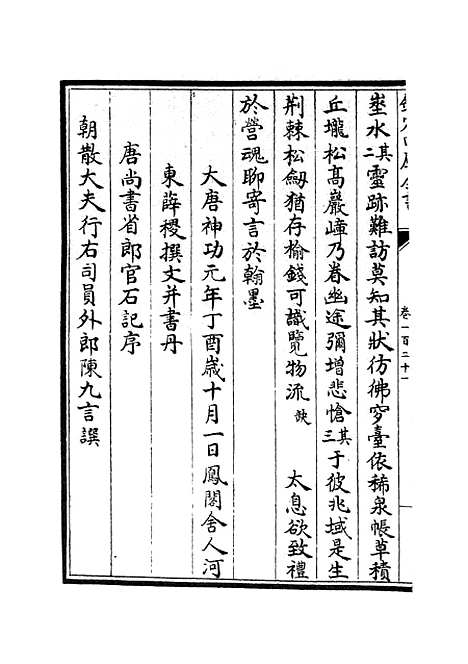 卷一百三十一
壑水其二靈跡難訪莫知其狀彷彿穸臺依稀泉帳草積
丘壠松高巖嶂乃眷幽途彌增悲愴其三于彼兆域是生
荆棘松劔猶存榆錢可識覽物流 缺 太息欲致禮
於營魂聊寄言於翰墨
大唐神功元年丁酉歲十月一日鳳閣舍人河
東薛稷撰文并書丹
唐尚書省郎官石記序
朝散大夫行右司員外郎陳九言譔